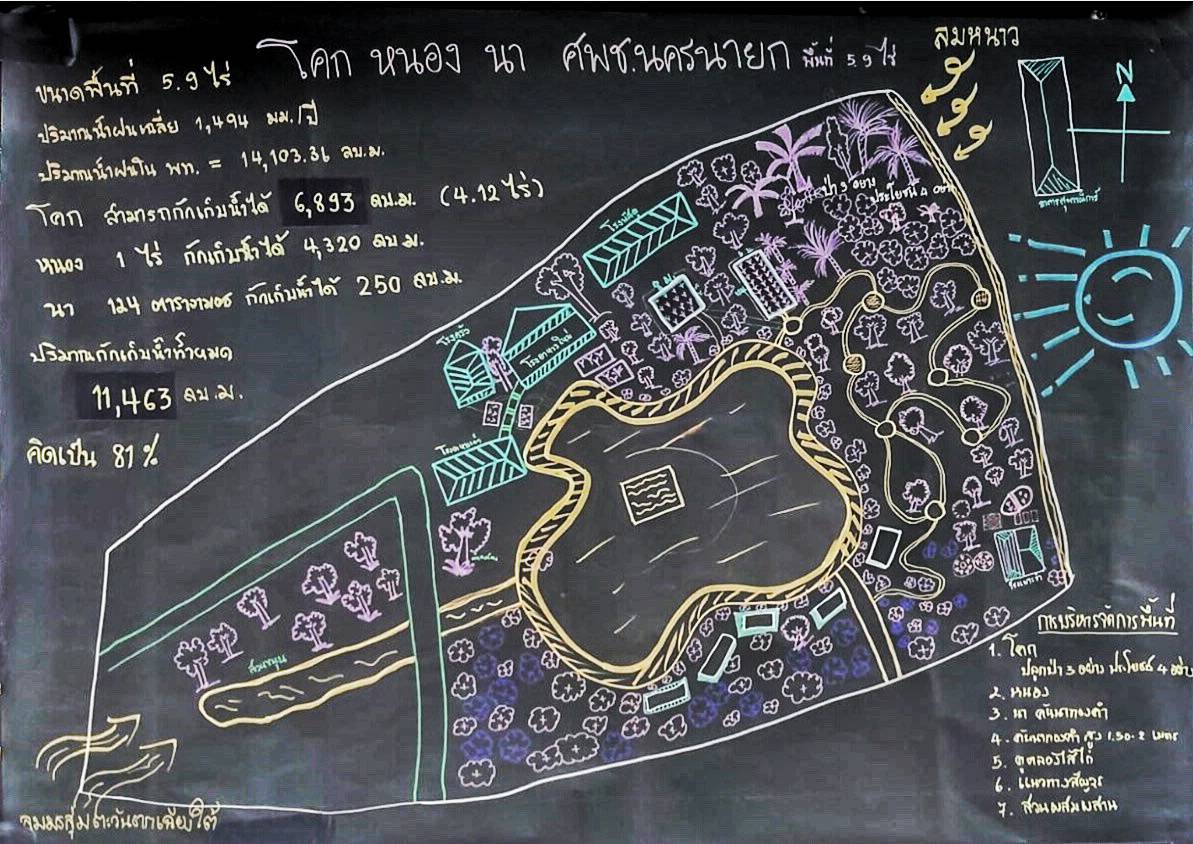 โคก หนอง นา ศพช.นครนายก พื้นที่ 5.9 ไร่
ขนาดพื้นที่ 5.9 ไร่
ปริมาณน้ำฝนเฉลี่ย 1,494 มม./ปี
ปริมาณน้ำฝนใน พท. = 14,103.36 ลบ.ม.
โคก สามารถกักเก็บน้ำได้ 6,893 ลบ.ม. (4.12 ไร่)
หนอง 1 ไร่ กักเก็บน้ำได้ 4,320 ลบ.ม.
นา 124 ตารางเมตร กักเก็บน้ำได้ 250 ลบ.ม.
ปริมาณกักเก็บน้ำทั้งหมด
11,463 ลบ.ม.
คิดเป็น 81 %
ลมหนาว
N
ป่า 3 อย่าง
ประโยชน์ 4 อย่าง
โรงครัว
โรงอาหารใหม่
สวนขนุน
ลมมรสุมตะวันตกเฉียงใต้
การบริหารจัดการพื้นที่
1. โคก
ปลูกป่า 3 อย่าง ประโยชน์ 4 อย่าง
2. หนอง
3. นา คันนาทองคำ
4. คันนาทองคำ สูง 1.50-2 เมตร
5. ขุดคลองไส้ไก่
6. แนวทางสัญจร
7. สวนผสมผสาน